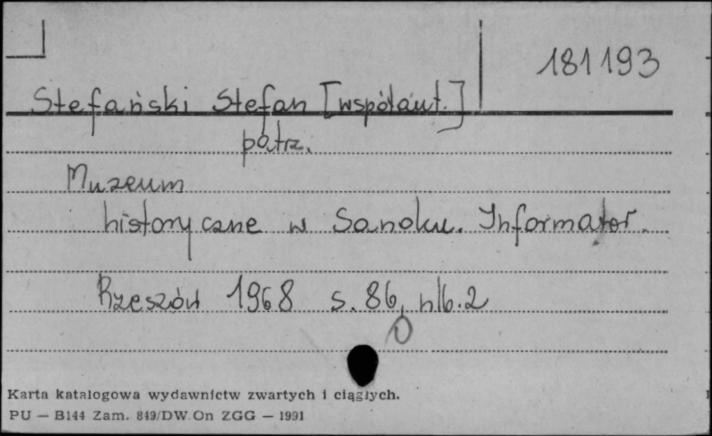 181193
Stefański Stefan [współaut.]
patrz.
Muzeum
historyczne w Sanoku. Informator.
Rzeszów 1968 s. 86, nlb. 2
Karta katalogowa wydawnictw zwartych i ciągłych.
PU — B144 Zam. 849/DW.On ZGG — 1991